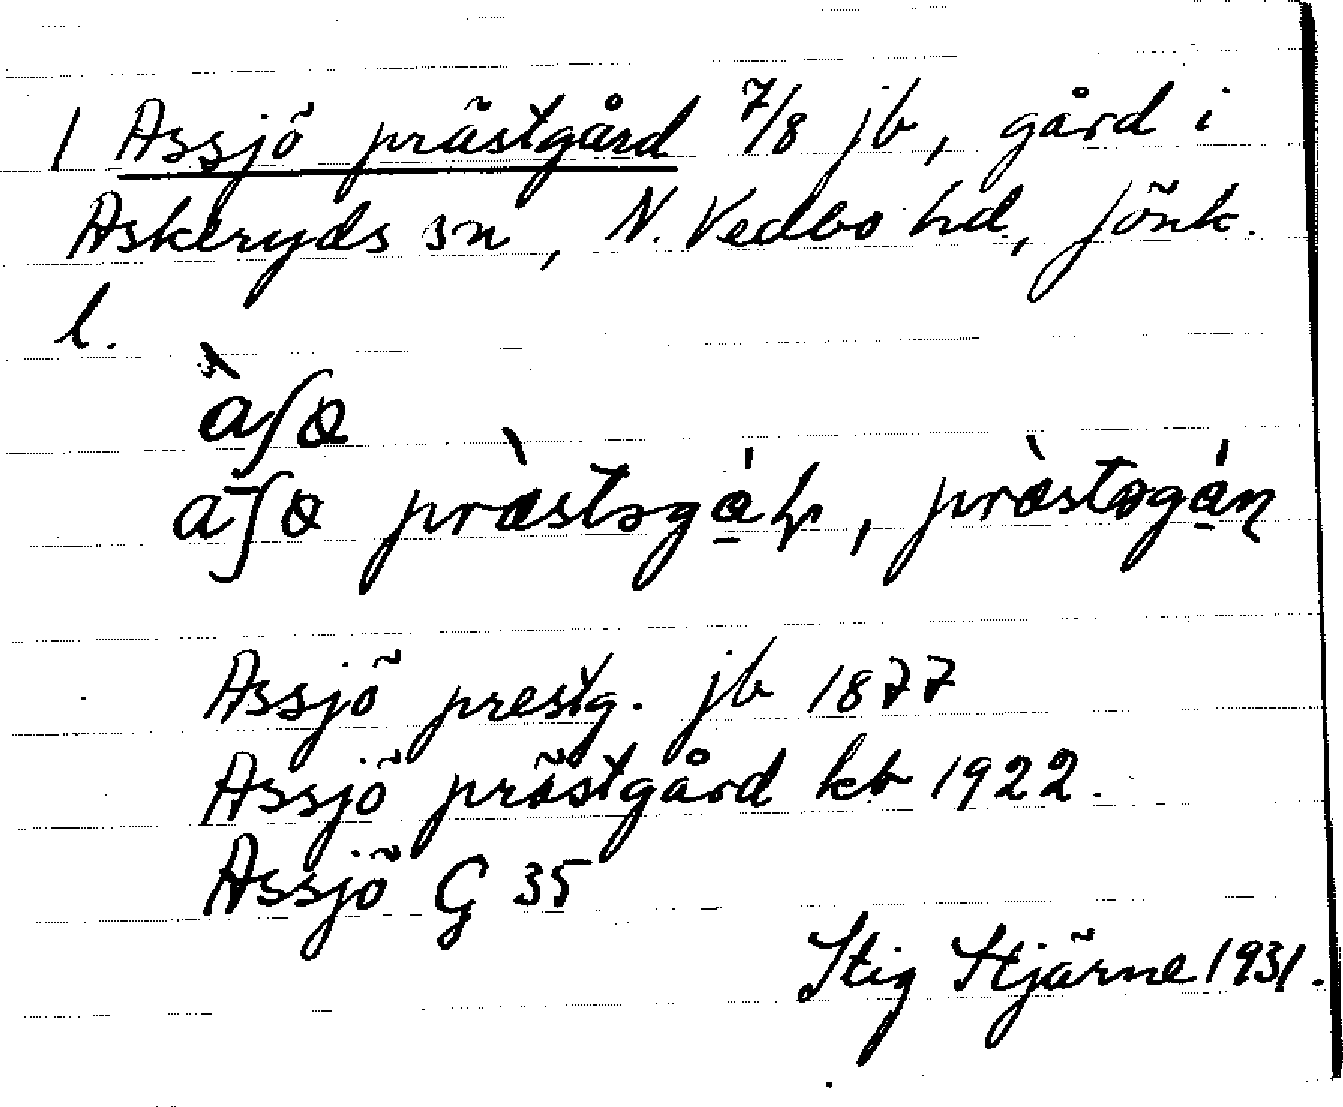 1 Assjö prästgård 7/8 jb, gård i
Askeryds sn, N. Vedbo hd, Jönk.
l.
Assjö prestg. jb 1877
Assjö prästgård kb 1922.
Assjö G 35
Stig Stjärne 1931.